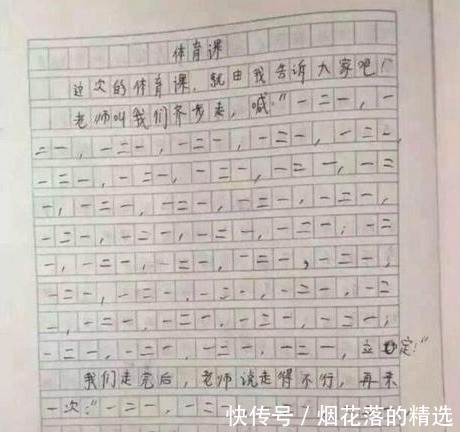 体育课
这次的体育课,就由我告诉大家吧!
老师叫我们齐步走,喊:“一二一,一
二一,一二一,一二一,一二一,一二一,
一二一,一二一,一二一,一二一,一二
一,一二一,一二一,一二一,一二一,
一二一,一二一,一二一,一二一;一二
一,一二一,一二一,一二一,一二一,
一二一,一二一,一二一,一二一,一二
一,一二一,一二一,一二一,一二一;
一二一,一二一,一二一,一二一,立定!”
我们走完后,老师说走得不行,再来
一次:“一二一,一二
快传号 / 烟花落的精选